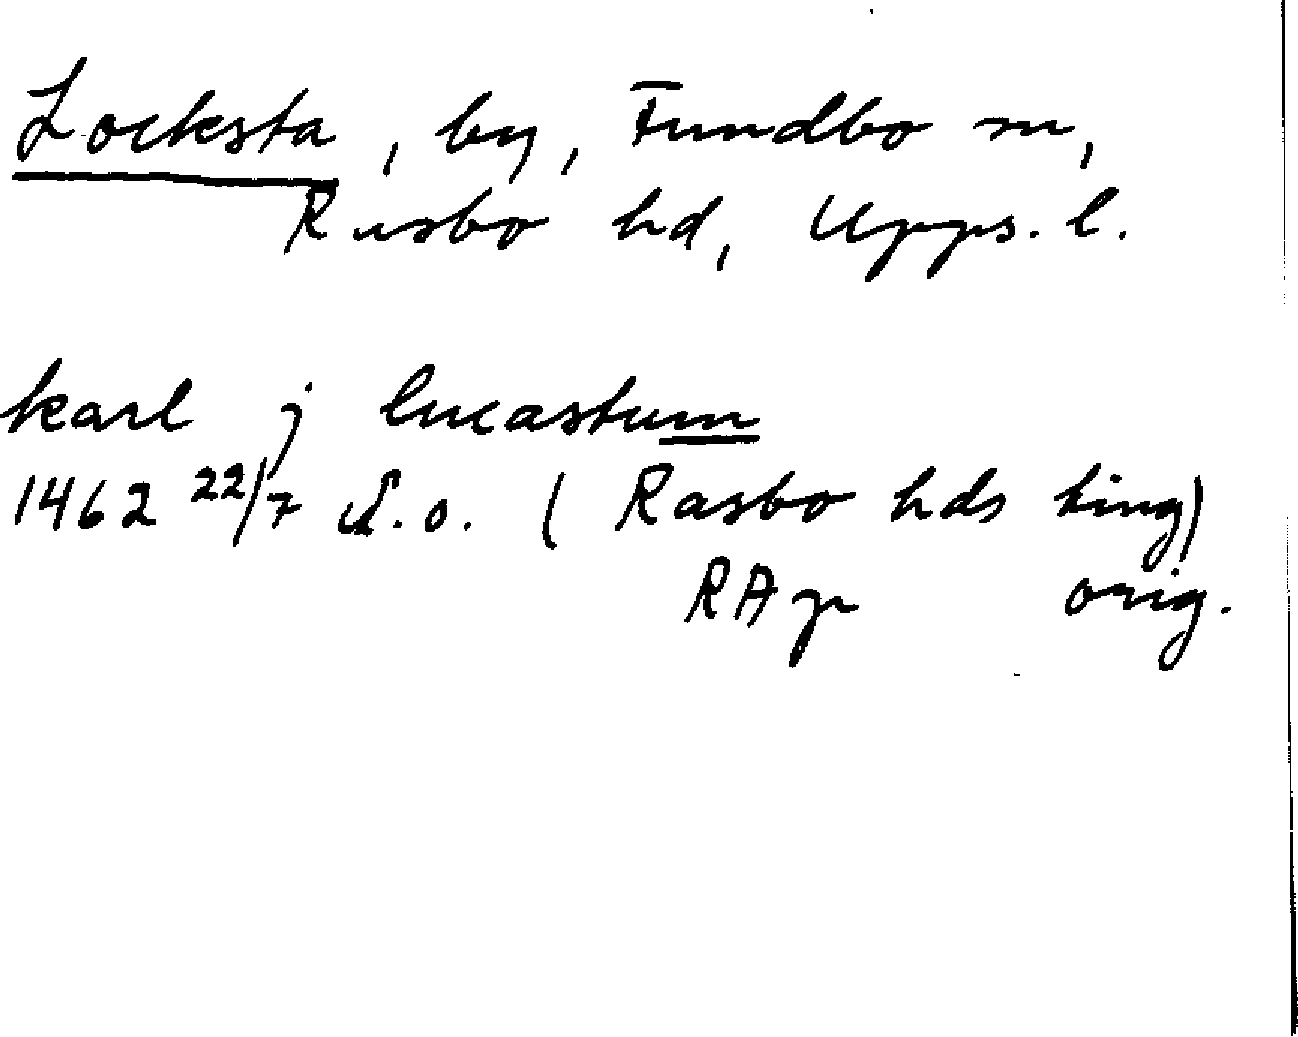 Locksta, by, Fundbo sn,
Rasbo hd, Upps. l.
karl j lucastum
1462 22/7 U.o. (Rasbo hds ting)
RAp orig.